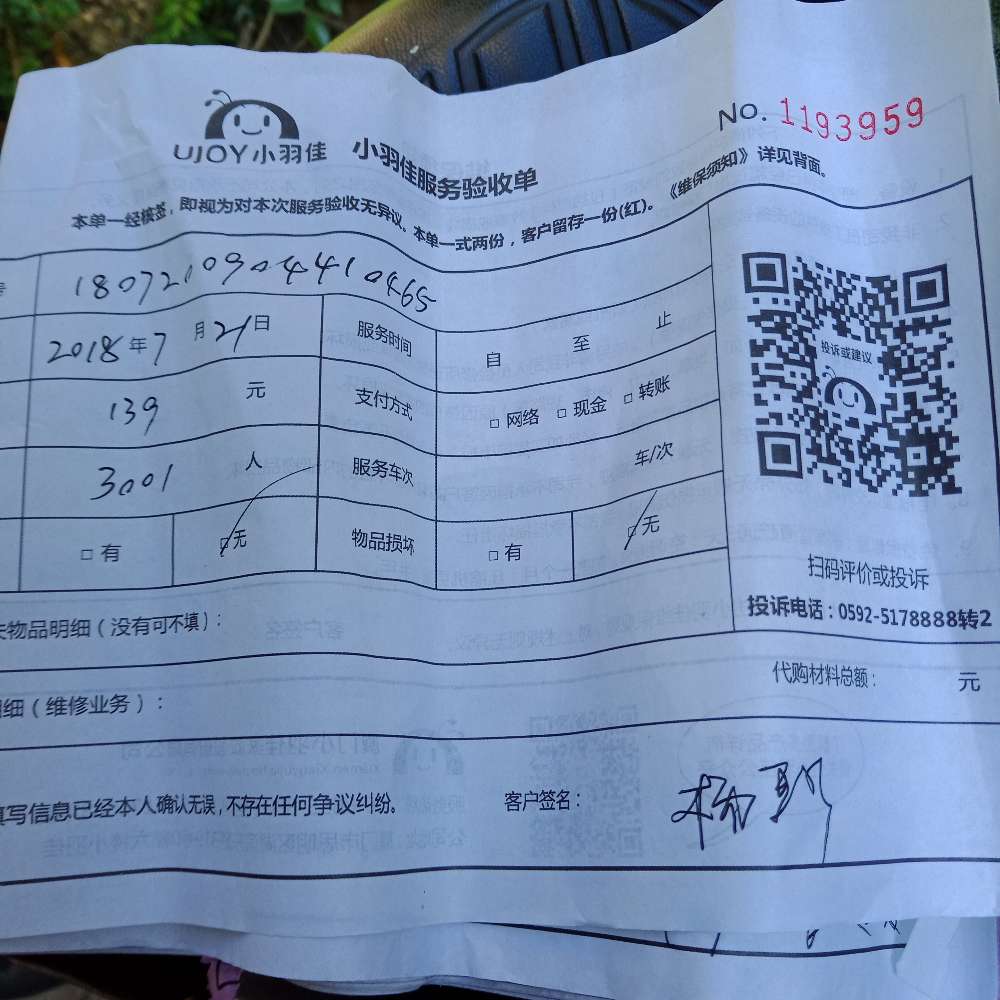 No. 1193959
UJOY小羽佳 小羽佳服务验收单
本单一经核签，即视为对本次服务验收无异议。本单一式两份，客户留存一份(红)。《维保须知》详见背面。
号 18072109044410465
2018年7月21日 服务时间 自 至 止
139 元 支付方式 □网络 □现金 □转账
3001 人 服务车次 车/次
□有 □无 物品损坏 □有 □无
投诉或建议
扫码评价或投诉
投诉电话：0592-5178888转2
失物品明细（没有可不填）：
代购材料总额： 元
细（维修业务）：
填写信息已经本人确认无误，不存在任何争议纠纷。 客户签名：